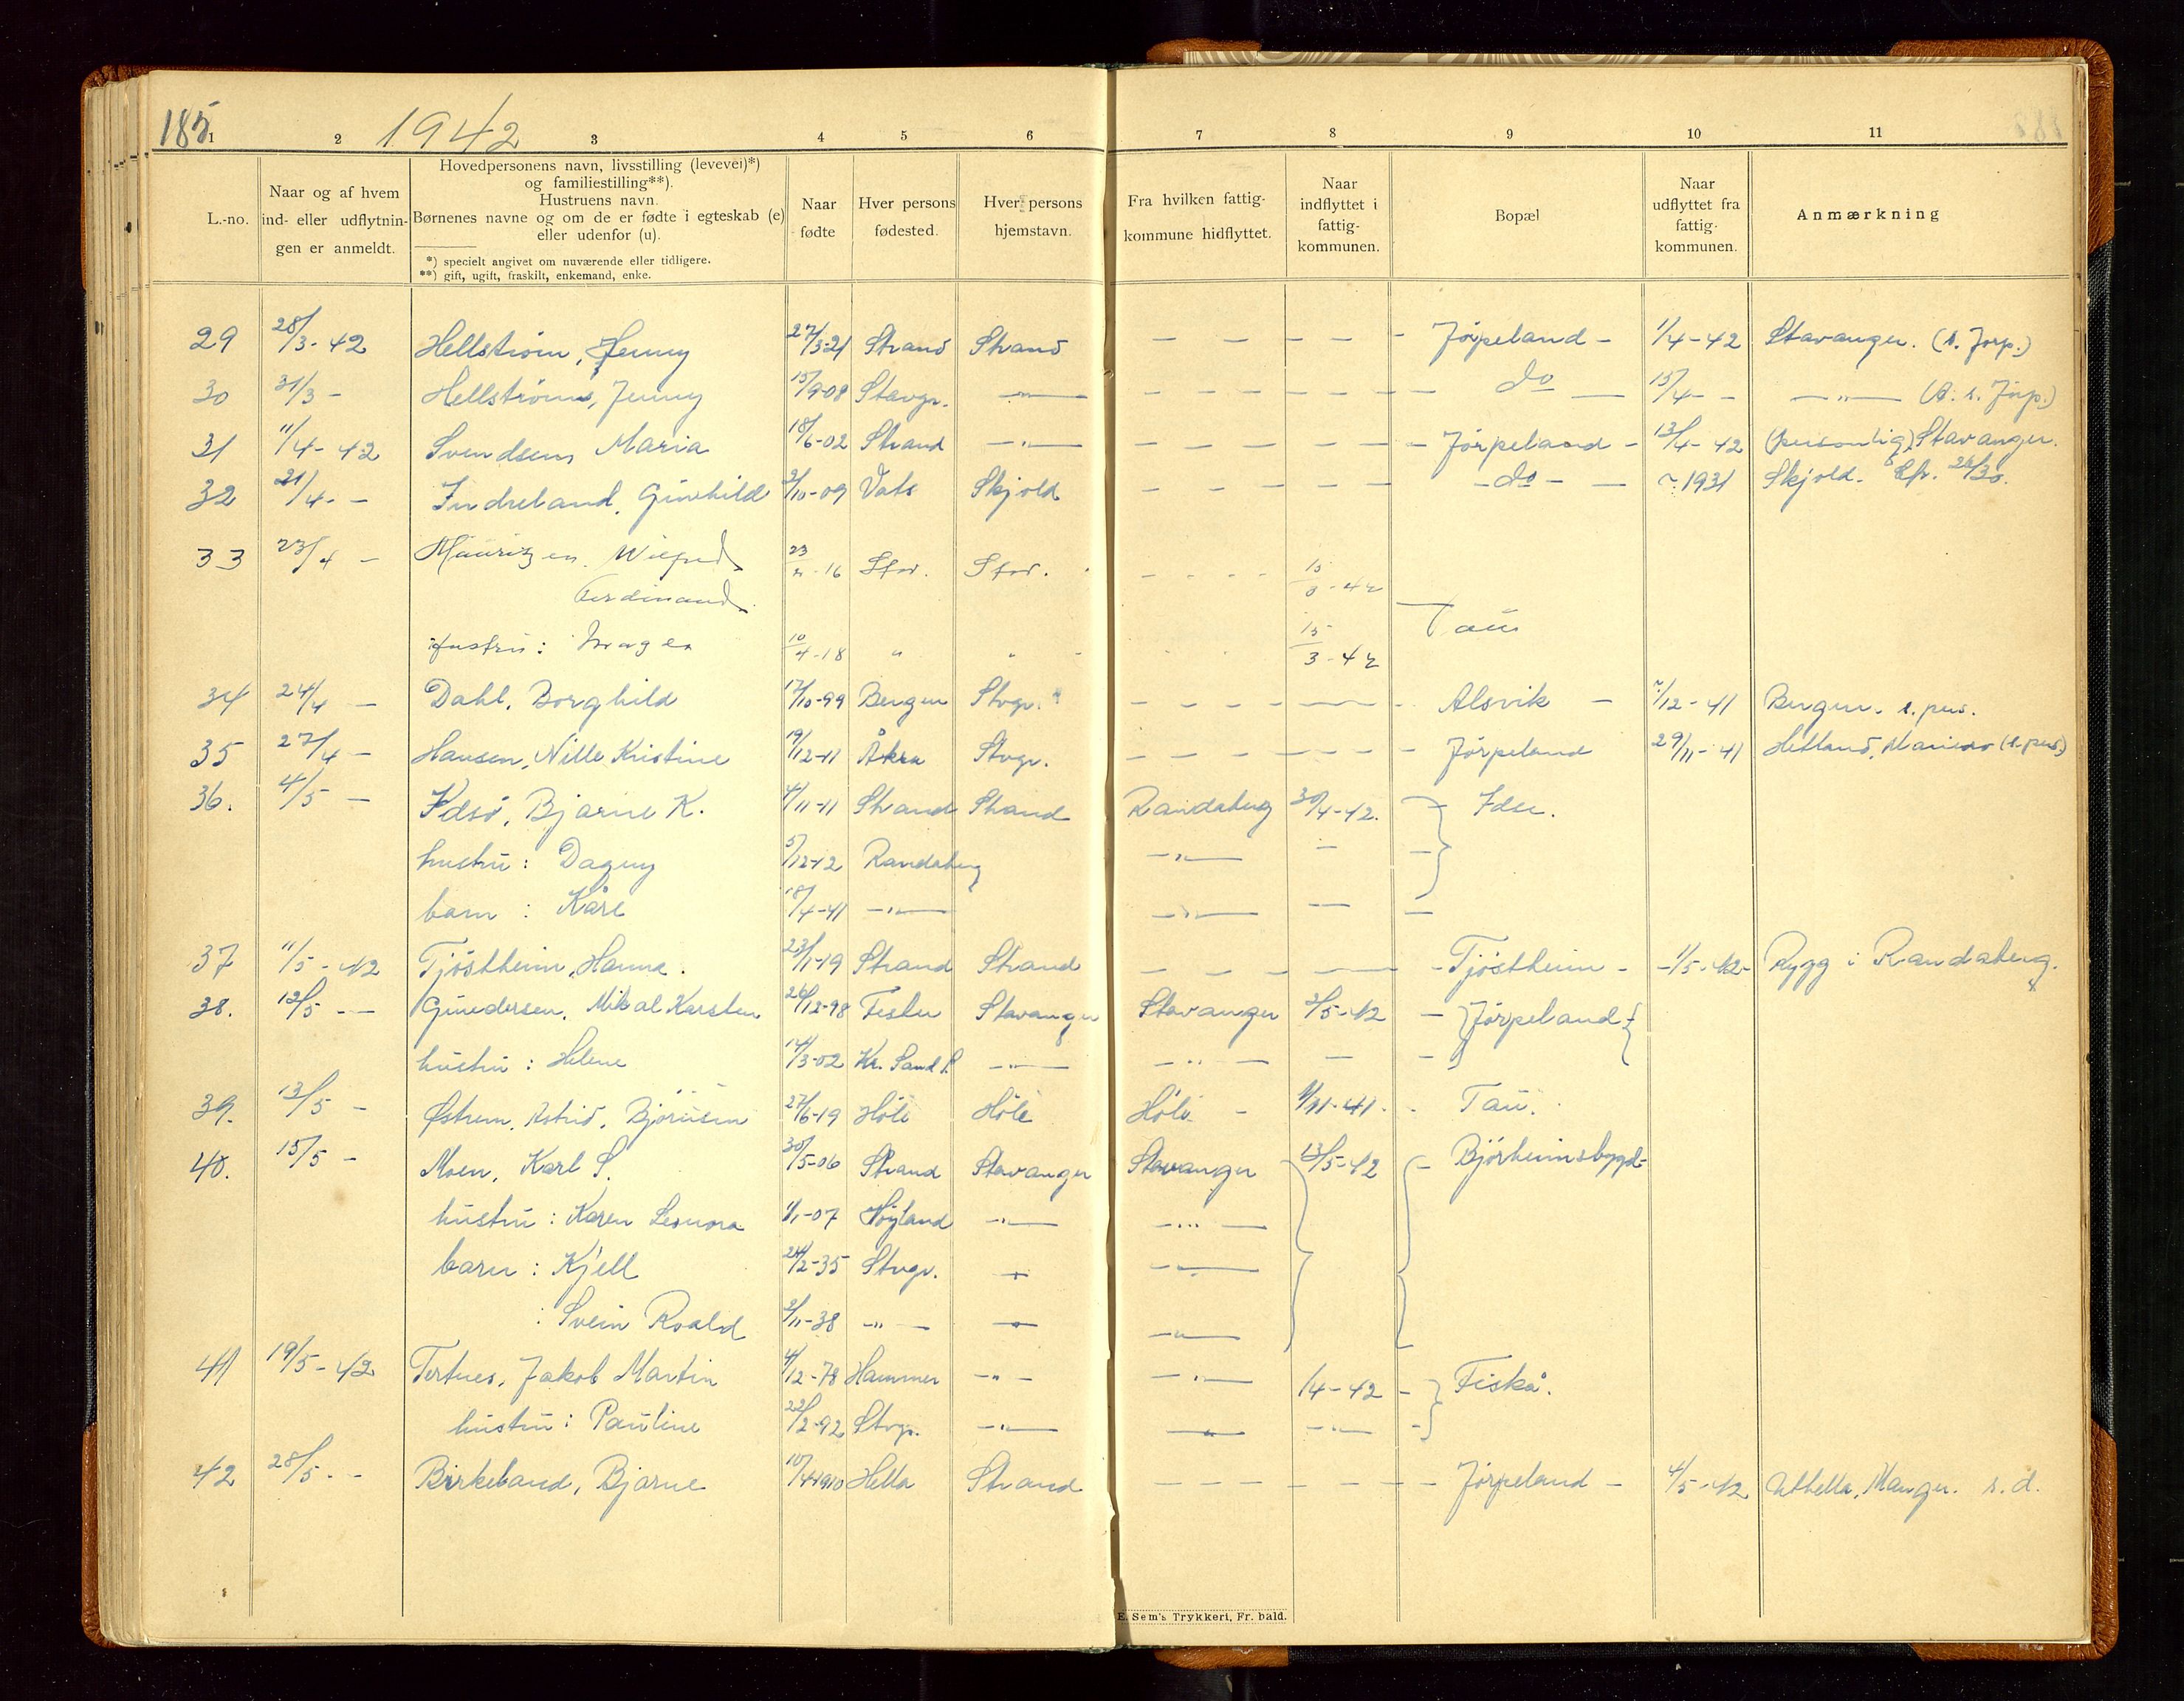 185 1942
1 2 3 4 5 6 7 8 9 10 11
L.-no.
Naar og af hvem ind- eller udflytningen er anmeldt.
Hovedpersonens navn, livsstilling (levevei)*)
og familiestilling**).
Hustruens navn.
Børnenes navne og om de er fødte i egteskab (e)
eller udenfor (u).
*) specielt angivet om nuværende eller tidligere.
**) gift, ugift, fraskilt, enkemand, enke.
Naar fødte
Hver persons fødested.
Hver persons hjemstavn.
Fra hvilken fattig-kommune hidflyttet.
Naar indflyttet i fattig-kommunen.
Bopæl
Naar udflyttet fra fattig-kommunen.
Anmærkning
29 28/3-42 Hellstrøm, Jenny 27/3-21 Strand Strand - - - - - - - Jørpeland - 1/4-42 Stavanger. (s. Jørp.)
30 31/3 - Hellstrøm, Jenny 15/9-08 Stavgr. -"- - - - - - - - do - 15/4- - -"- (A. s. Jørp.)
31 11/4-42 Svendsen, Maria 18/6-02 Strand -"- - - - - - - - Jørpeland - 13/4-42 (personlig) Stavanger.
32 21/4- - Indreland, Gunhild 2/10-09 Vats Skjold - - - - - - - do - - 1931 Skjold.
33 23/4 - Mauritzen. Wilfred 23 -16 Stav. Stav. - - - - 15/3-42
Ferdinand
Hustru: Mager 10/4-18 " " 15/3-42 Tau
34 24/4 - Dahl, Borghild 17/10-99 Bergen Stvgr. - - - - Alsvik - /12-41 Bergen. s. pers.
35 27/4 - Hansen, Nille Kristine 19/12-11 Åkra Stvgr. - - - - - - - Jørpeland 29/11-41 Hetland, (s. pers.)
36. 4/5 - Idsø, Bjarne K. 4/11-11 Strand Strand Randaberg 30/4-42. Idse.
hustru: Dagny 5/12-12 Randaberg -"- - -
barn: Kåre 18/4-41 -"- -"- - -
37 11/5-42 Tjøstheim, Hanna. 23/1-19 Strand Strand - - - - Tjøstheim - -1/5-42- Rygg i Randaberg.
38. 12/5 -- Gundersen, Mikal Karsten 26/12-98 Fister Stavanger Stavanger 2/5-42 - Jørpeland
hustru: Helene 14/3-02 Kr. Sand S. -"- -"- - -
39. 13/5 - Østrem, Astrid, Bjørnsen 27/6-19 Høle Høle Høle - 1/11-41. - Tau.
40. 15/5 - Moen, Karl S. 30/5-06 Strand Stavanger Stavanger 13/5-42 - Bjørheimsbygd-
hustru: Karen Leonora 1/1-07 Høyland -"- -"-
barn: Kjell 24/2-35 Stvgr. -"- -"-
: Svein Roald 2/11-38 -"- -"- -"-
41 19/5-42 Tertnes, Jakob Martin 4/12-78 Hammer -"- -"- 14-42 - Fiskå.
hustru: Pauline 22/2-92 Stvgr. -"- -"- -"- -
42 28/5 - - Birkeland, Bjarne 10/4 1910 Hetla Strand - - - - - - - Jørpeland - 4/5-42 Uthella, Manger. s. d.
E. Sem's Trykkeri, Fr.hald.